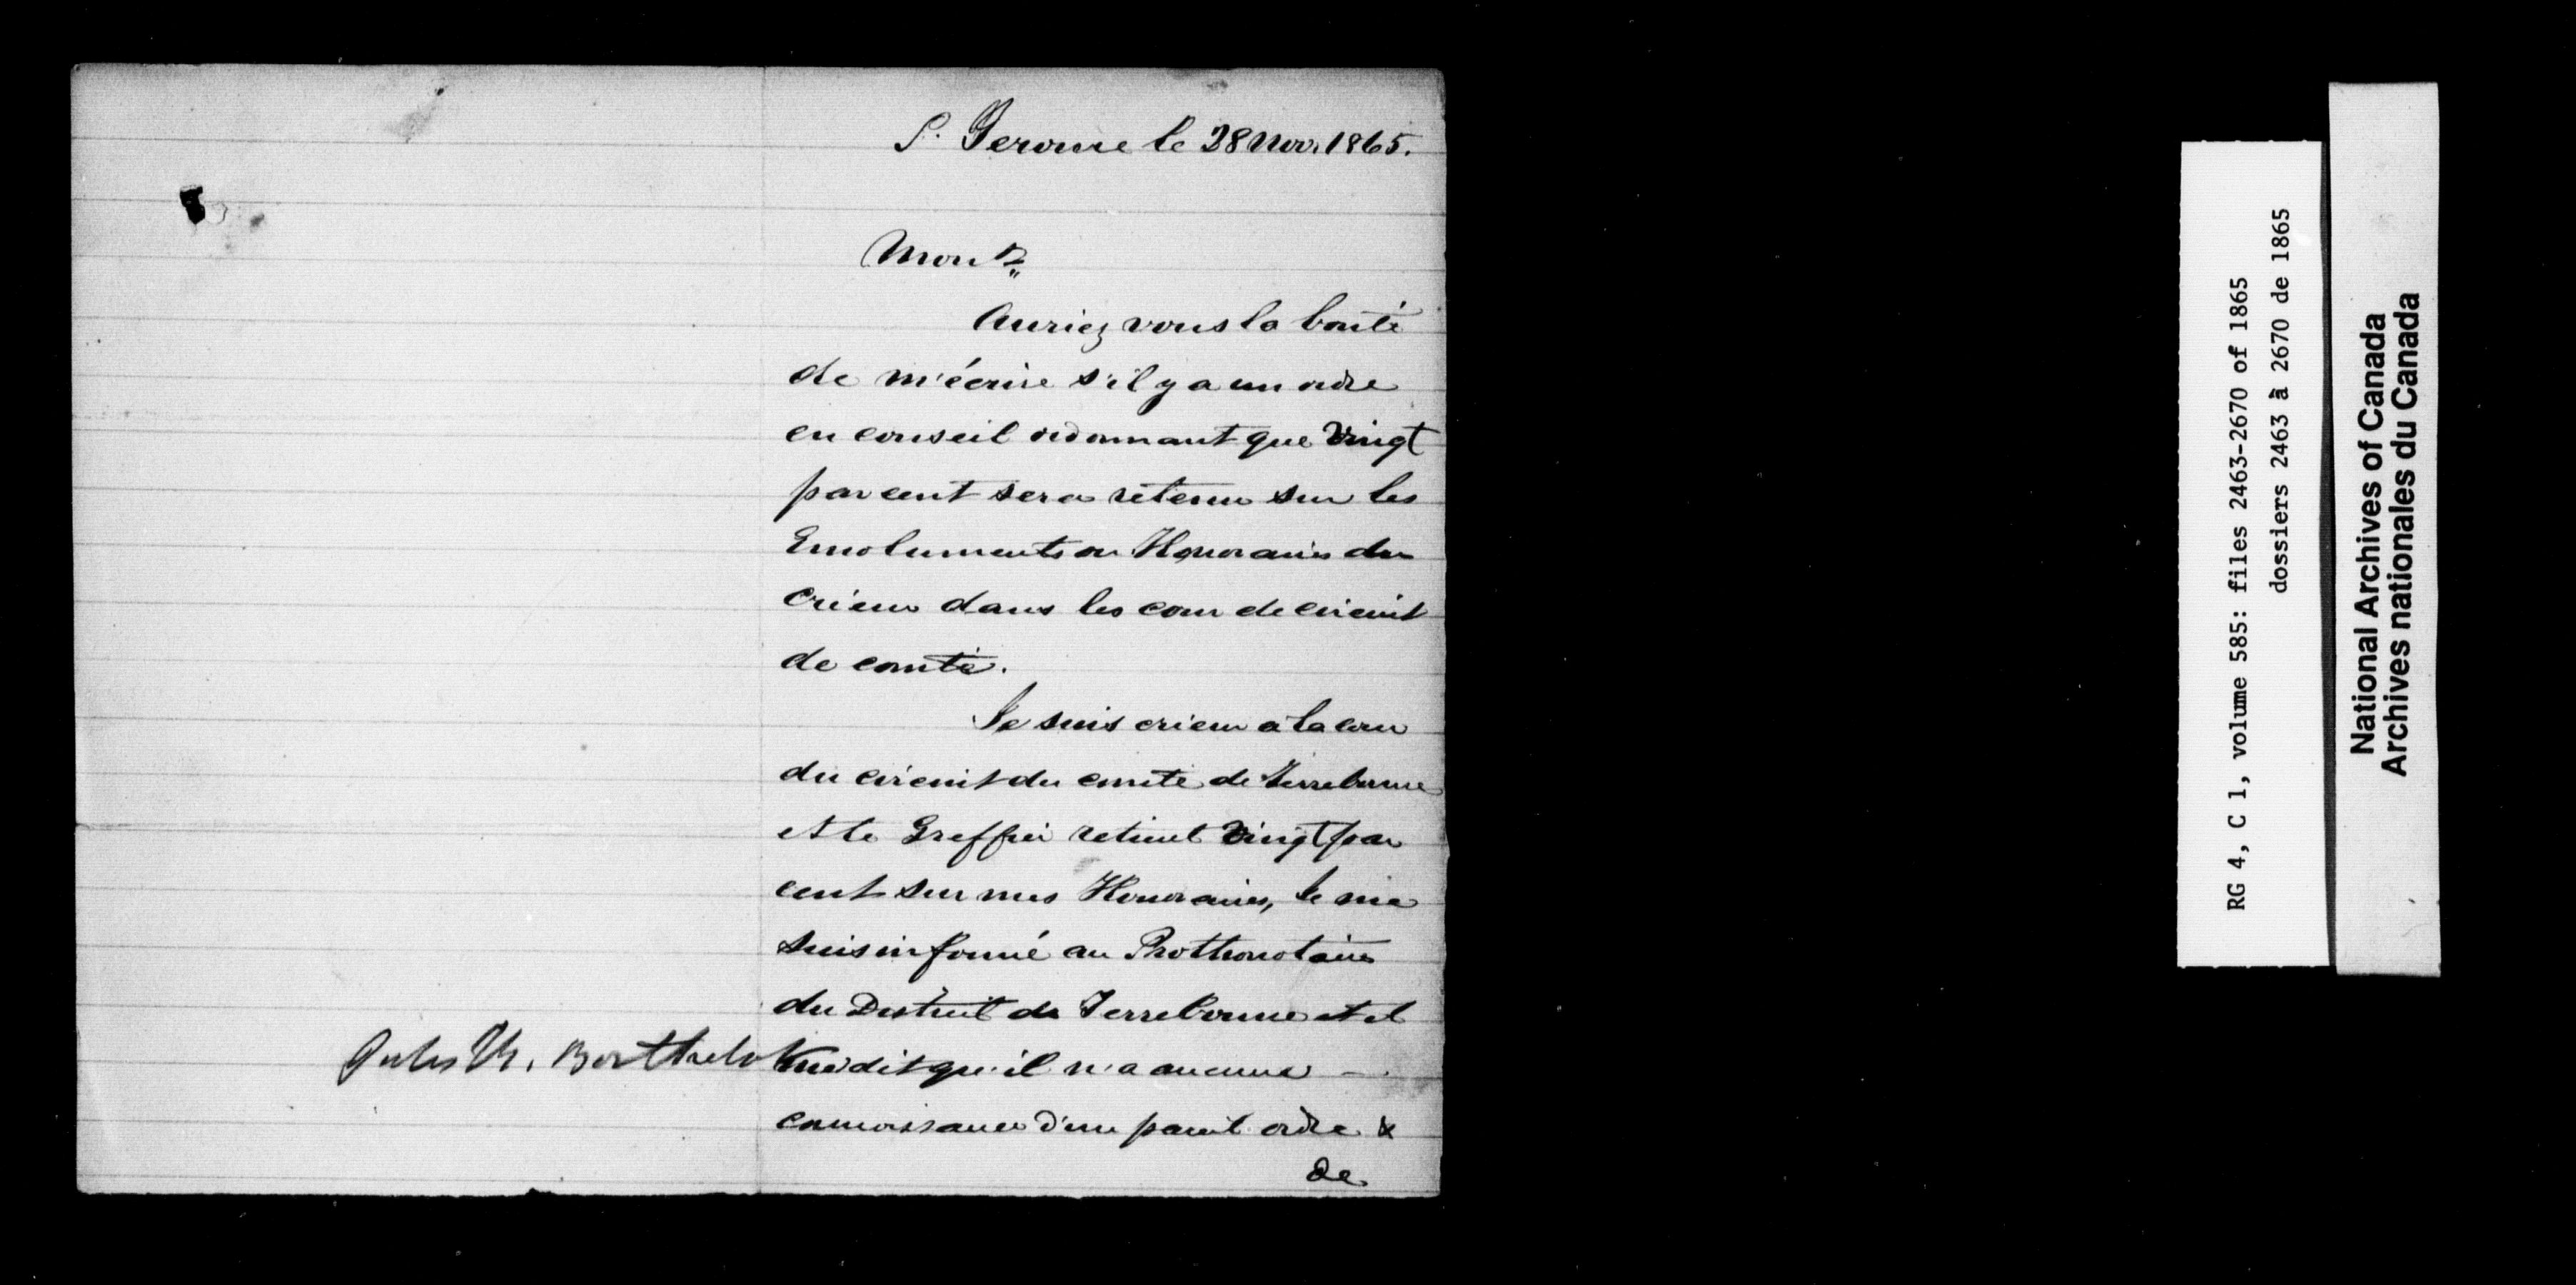 St. Jerome le 28 Nov. 1865.
Monsr
Auriez vous la bonté
de m'écrire s'il y a un ordre
en conseil ordonnant que vingt
par cent sera retenu sur les
Emoluments ou Honoraires du
crieur dans les cour de circuit
de comté.
Je suis crieur à la cour
du circuit du comté de Terrebonne
et le Greffier retient vingt par
cent sur mes Honoraires, Je me
suis informé au Prothonotaire
du District de Terrebonne et il
me dit qu'il n'a aucune
connaissance d'un pareil ordre &
de
Jules Berthelot
RG 4, C 1, volume 585: files 2463-2670 of 1865
dossiers 2463 à 2670 de 1865
National Archives of Canada
Archives nationales du Canada